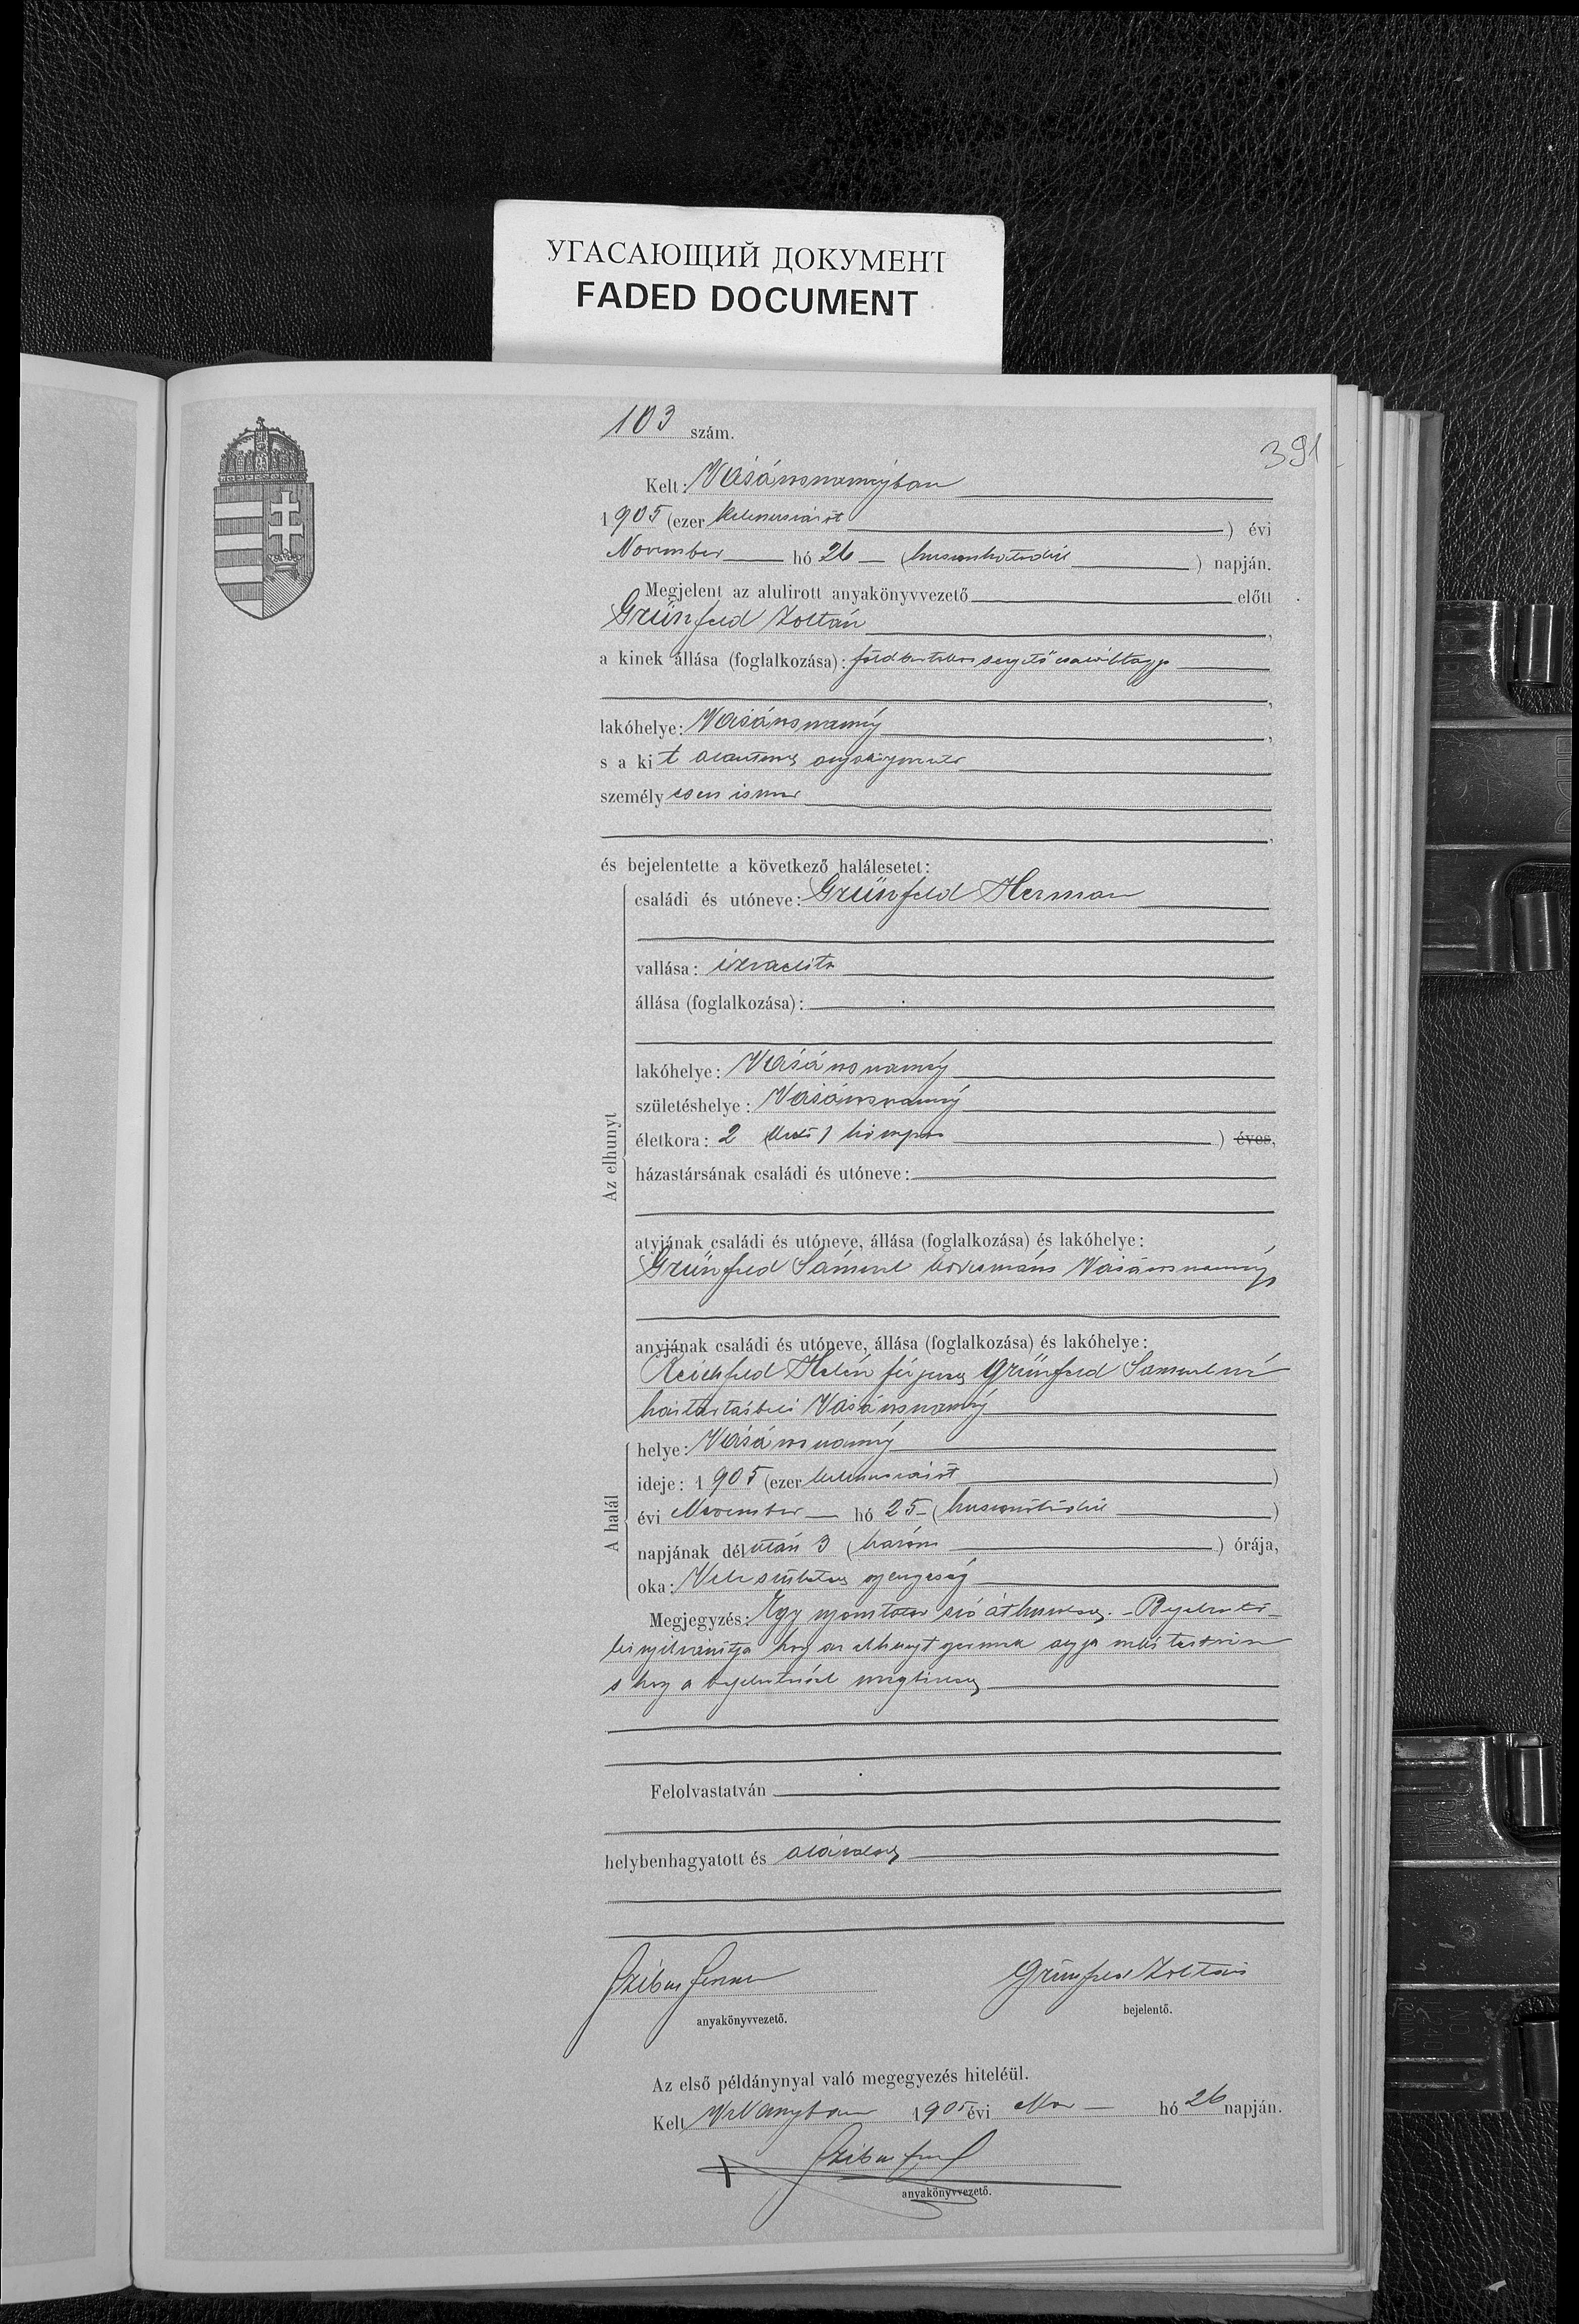 УГАСАЮЩИЙ ДОКУМЕНТ
FADED DOCUMENT
103 szám.
391
Kelt: Vásárosnaményban
1905 (ezer kilencszázöt ) évi
November hó 26 (huszonhatodik ) napján.
Megjelent az alulirott anyakönyvvezető előtt
Grünfeld Zoltán,
a kinek állása (foglalkozása): földbirtokos segítő családtagja
,
lakóhelye: Vásárosnamény,
s a kit
személy ismer
,
és bejelentette a következő halálesetet:
Az elhunyt
családi és utóneve: Grünfeld Herman
vallása: izraelita
állása (foglalkozása):
lakóhelye: Vásárosnamény
születéshelye: Vásárosnamény
életkora: 2 (kettő) hónapos ) éves,
házastársának családi és utóneve:
atyjának családi és utóneve, állása (foglalkozása) és lakóhelye:
Grünfeld Sámuel Vásárosnamény
anyjának családi és utóneve, állása (foglalkozása) és lakóhelye:
Reichfeld Helén férjezett Grünfeld Samuelné
háztartásbeli Vásárosnamény
A halál
helye: Vásárosnamény
ideje: 1905 (ezer kilencszázöt )
évi November hó 25 (huszonötödik )
napjának délután 3 (három ) órája,
oka: Vele született gyengeség
Megjegyzés: Egy nyomtatott szó áthúzva. - Bejelentő
kinyilvánítja hogy az elhunyt
s hogy a
Felolvastatván
helybenhagyatott és aláíratott
anyakönyvvezető.
Grünfeld Zoltán
bejelentő.
Az első példánynyal való megegyezés hiteléül.
Kelt 1905 évi Nov hó 26 napján.
anyakönyvvezető.